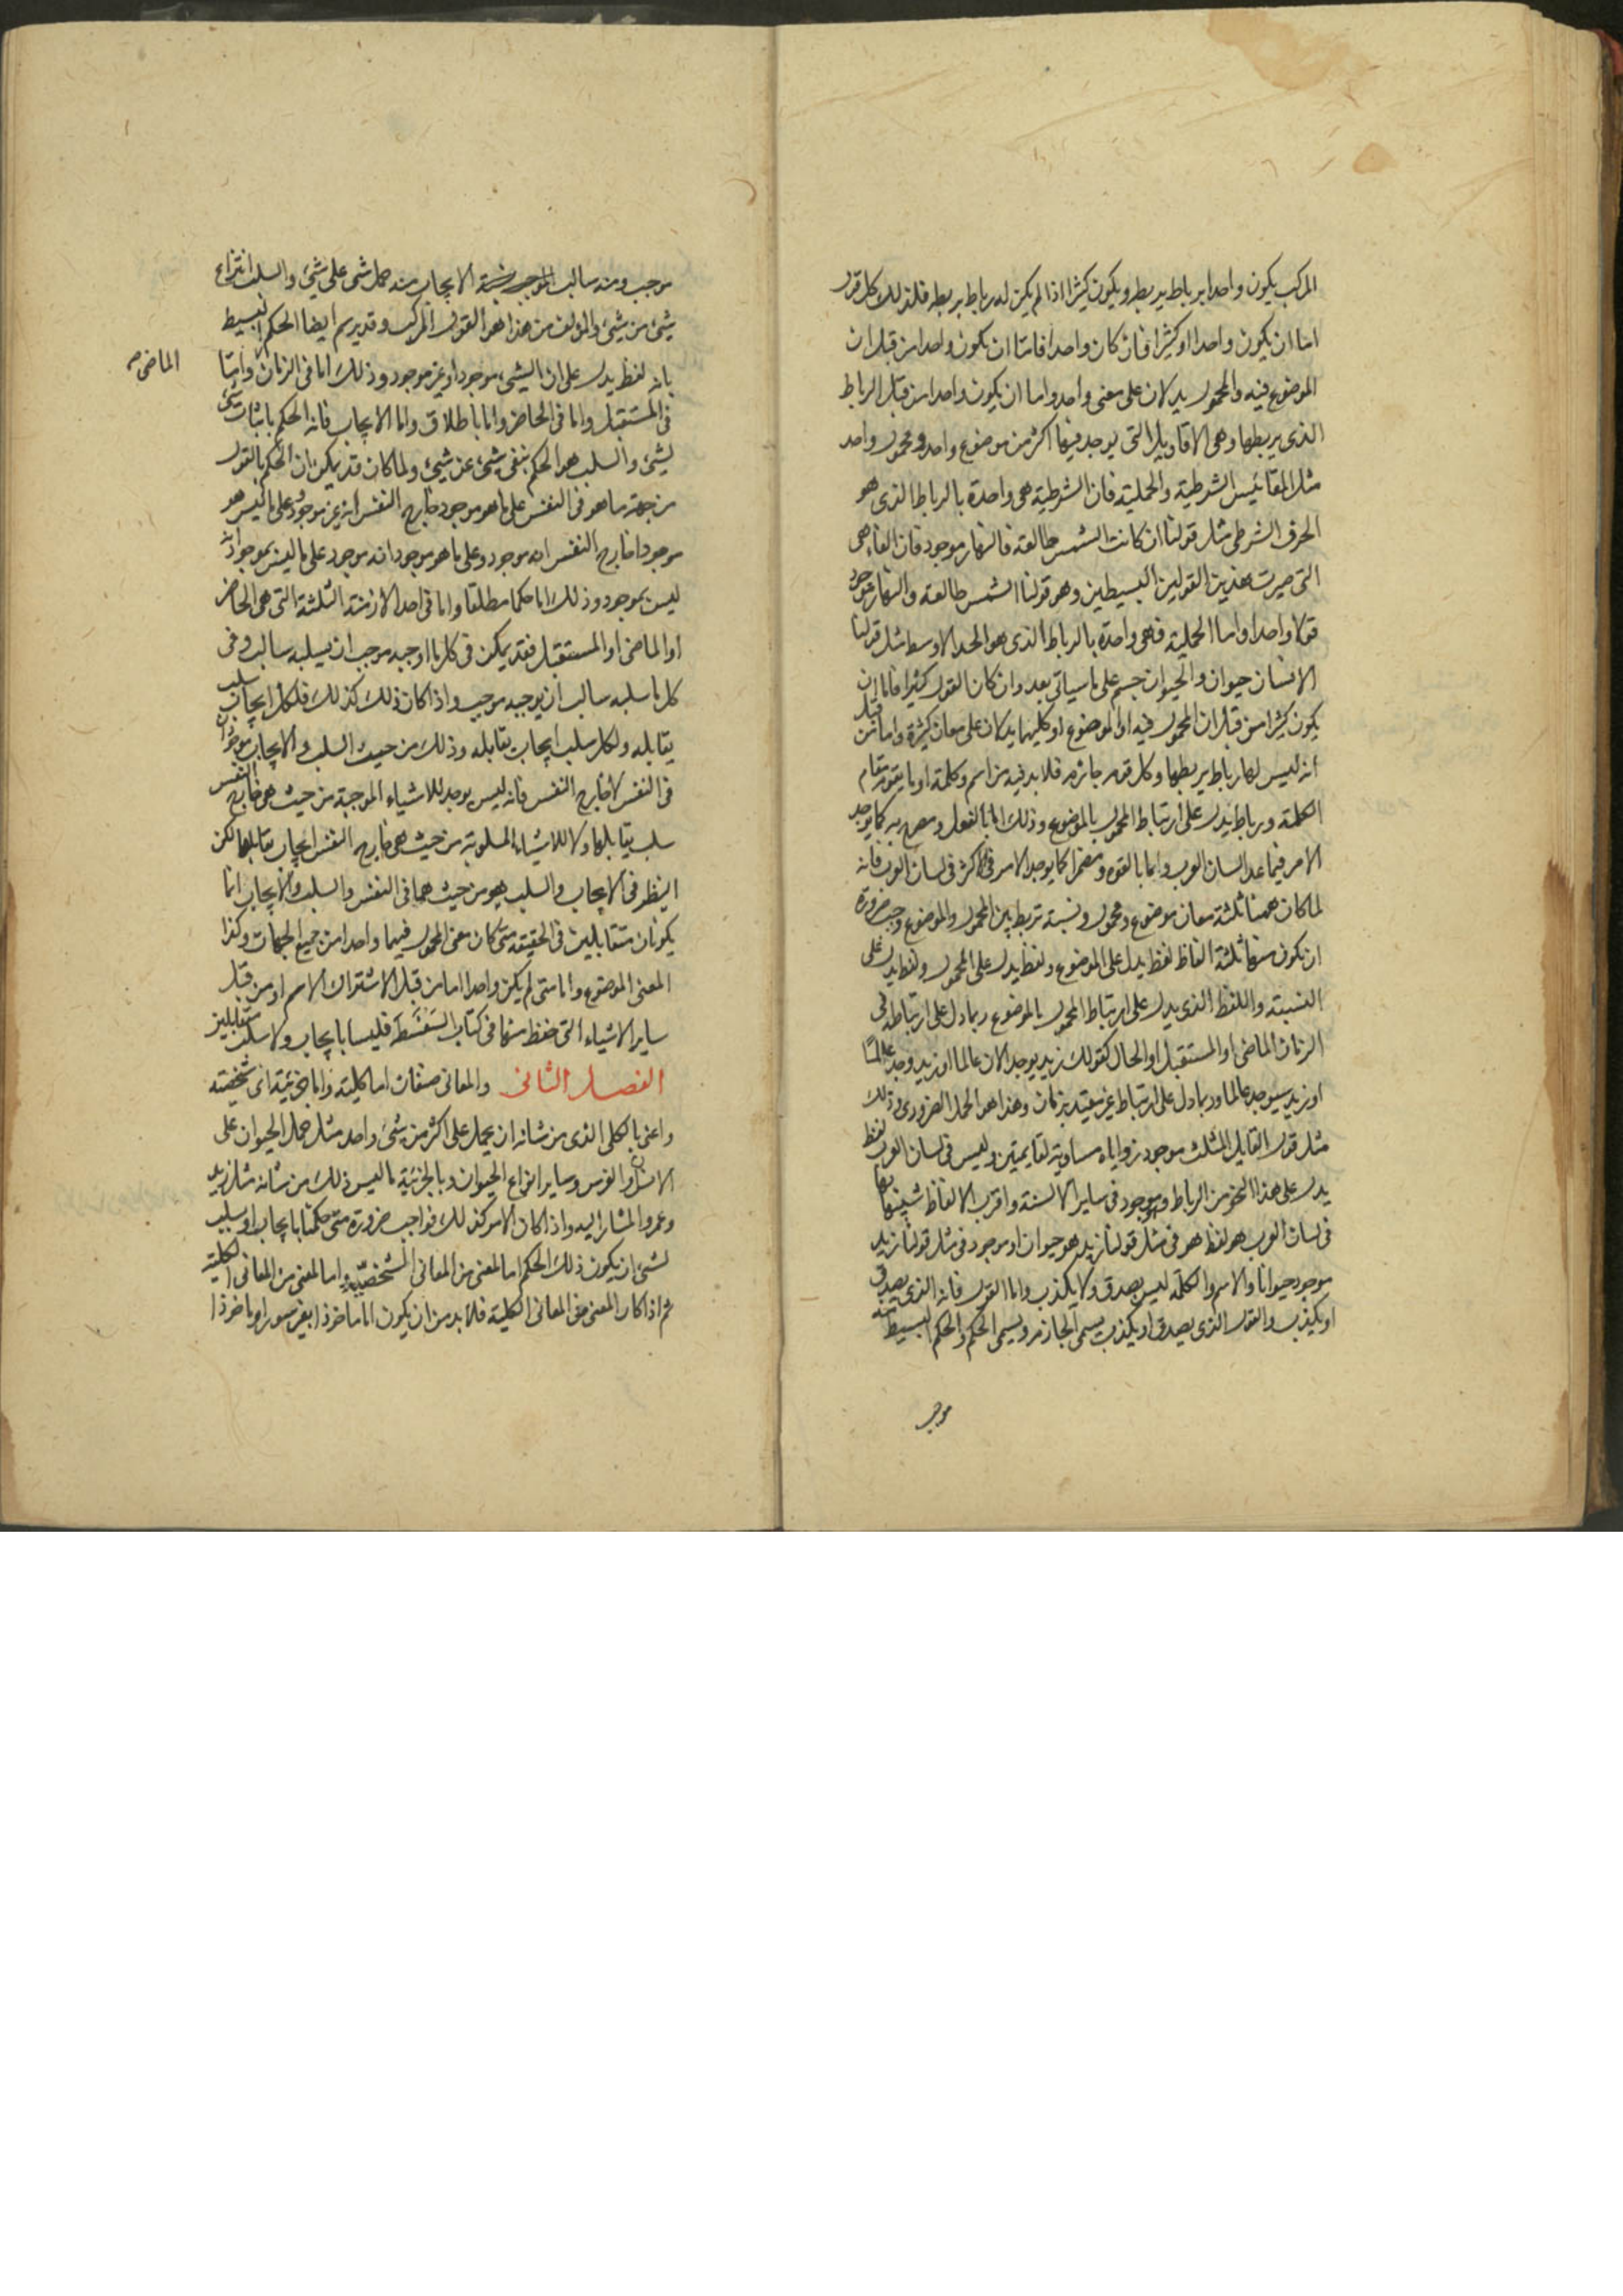 المركب يكون واحدا برباط يربطه ويكون كثيرا اذا لم يكن له رباط يربطه فلذلك كل قول
اما ان يكون واحدا او كثيرا فان كان واحدا فاما ان يكون واحدا من قبل ان
الموضوع فيه والمحمول يدلان على معنى واحد واما ان يكون واحدا من قبل الرباط
الذى يربطها وهى الاقاويل التى يوجد فيها اكثر من موضوع واحد ومحمول واحد
مثل المقائيس الشرطية والحملية فان الشرطية هى واحدة بالرباط الذى هو
الحرف الشرطى مثل قولنا ان كانت الشمس طالعة فالنهار موجود فان الفاء هى
التى صيرت هذين القولين البسيطين وهو قولنا الشمس طالعة والنهار موجود
قولا واحدا واما الحملية فهى واحدة بالرباط الذى هو الحد الاوسط مثل قولنا
الانسان حيوان والحيوان جسم على ما سياتى بعد وان كان القول كثيرا فاما ان
يكون كثيرا من قبل ان المحمول فيه او الموضوع او كليهما يدلان على معان كثيرة واما من قبل
انه ليس لها رباط يربطها وكل قول جازم فلا بد فيه من اسم وكلمة او ما يقوم مقام
الكلمة ورباط يدل على ارتباط المحمول بالموضوع وذلك اما بالفعل ومصرح به كما يوجد
الامر فيما عدا لسان العرب واما بالقوه ومضمرا كما يوجد الامر فى الاكثر فى لسان العرب فانه
لما كان ههنا ثلثة معان موضوع ومحمول ونسبة تربط بين المحمول والموضوع وجب ضرورة
ان تكون منها ثلثة الفاظ لفظ يدل على الموضوع ولفظ يدل على المحمول ولفظ يدل على
النسبة واللفظ الذى يدل على ارتباط المحمول بالموضوع ربما دل على ارتباطه فى
الزمان الماضى او المستقبل او الحال كقولك زيد يوجد الان عالما او زيد وجد عالمًا
او زيد سيوجد عالما وربما دل على ارتباط غير مقيد بزمان وهذا هو الحمل الضرورى وذلك
مثل قول القايل المثلث موجود زواياه مساوية لقايمتين وليس فى لسان العرب لفظ
يدل على هذا النحو من الرباط وهو موجود فى ساير الالسنة واقرب الالفاظ شبيها بها
فى لسان العرب هو لفظ هو فى مثل قولنا زيد هو حيوان او موجود فى مثل قولنا زيد
موجود حيوانا والاسم والكلمة ليس يصدق ولا يكذب واما القول فانه الذى يصدق
او يكذب والقول الذى يصدق او يكذب يسمى الجازم ويسمى الحكم والحكم البسيط منه
موجب
موجب ومنه سالب الموجب الايجاب منه حمل شى على شىء والسلب انتزاع
شىء من شىء والمؤلف من هذا هو القول المركب وقد يرسم ايضا الحكم البسيط
بانه لفظ يدل على ان الشىء موجود او غير موجود وذلك اما فى الزمان واما
الماضى
فى المستقبل واما فى الحاضر واما باطلاق واما الايجاب فانه الحكم باثبات شىء
لشىء والسلب هو الحكم بنفى شىء عن شىء ولما كان قد يمكن ان الحكم بالقول
من جهة ما هو فى النفس على ما هو موجود خارج النفس انه غير موجود وعلى ما ليس هو
موجودا خارج النفس انه موجود وعلى ما هو موجود انه موجود على ما ليس بموجود انه
ليس بموجود وذلك اما حكما مطلقا واما فى احد الازمنة الثلثة التى هى الحاضر
او الماضى او المستقبل فقد يمكن فى كل ما اوجبه موجب ان يسلبه سالب وفى
كل ما سلبه سالب ان يوجبه موجب واذا كان ذلك كذلك فلكل ايجاب سلب
يقابله ولكل سلب ايجاب يقابله وذلك من حيث السلب والايجاب موجودان
فى النفس لا خارج النفس فانه ليس يوجد للاشياء الموجبة من حيث هى خارج النفس
سلب يقابلها ولا للاشياء المسلوبة من حيث هى خارج النفس ايجاب يقابلها لكن
النظر فى الايجاب والسلب هو من حيث هما فى النفس والسلب والايجاب انما
يكونان متقابلين فى الحقيقة متى كان معنى المحمول فيهما واحدا من جميع الجهات وكذا
المعنى الموضوع واما متى لم يكن واحدا اما من قبل الاشتراك الاسم او من قبل
ساير الاشياء التى حفظ منها فى كتاب السفسطة فليسا بايجاب ولا سلب متقابلين
الفصل الثانى والمعانى صنفان اما كلية واما جزئية اى شخصية
واعنى بالكلى الذى من شانه ان يحمل على اكثر من شىء واحد مثل حمل الحيوان على
الانسان والفرس وساير انواع الحيوان وبالجزئية ما ليس ذلك من شانه مثل زيد
وعمرو المشار اليه واذا كان الامر كذلك فواجب ضرورة متى حكمنا بايجاب او سلب
لشىء ان يكون ذلك الحكم اما لمعنى من المعانى الشخصيّة واما لمعنى من المعانى الكلية
ثم اذا كان المعنى من المعانى الكلية فلا بد من ان يكون اما ماخوذا بغير سور او ماخوذا